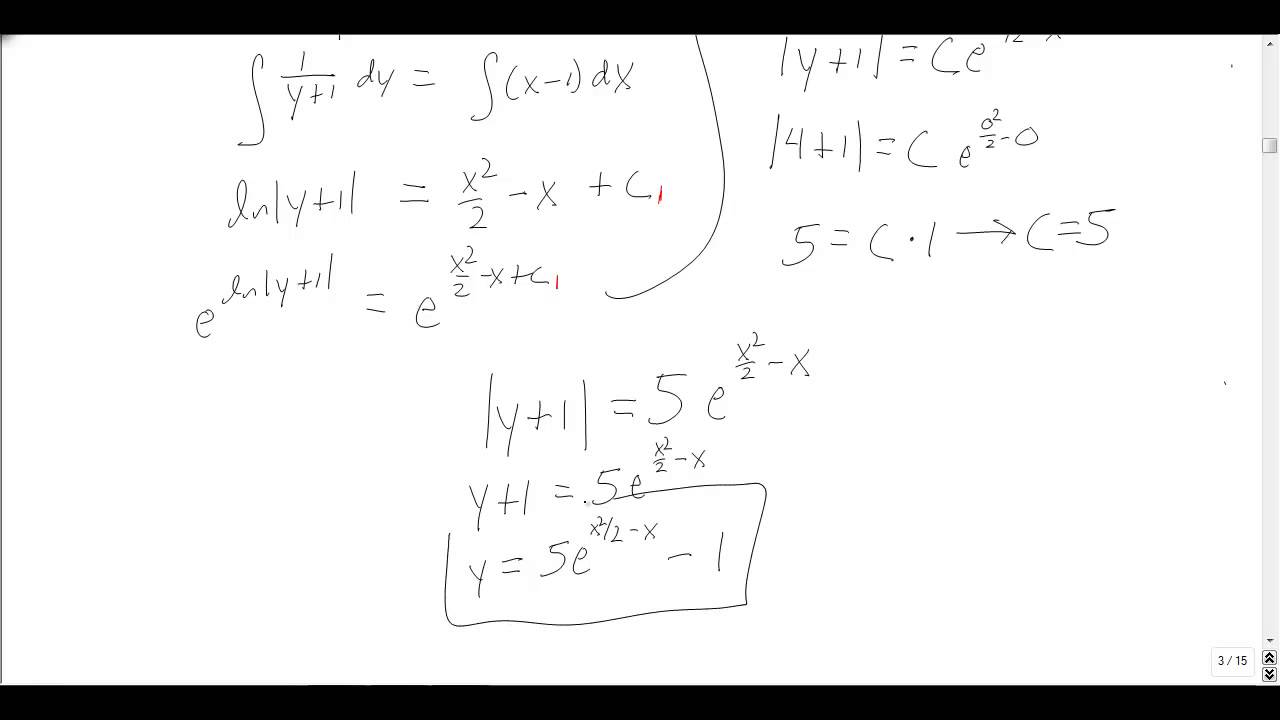 ∫ 1/(y+1) dy = ∫(x-1)dx
ln|y+1| = x²/2 - x + C₁
e^(ln|y+1|) = e^(x²/2 - x + C₁)
|y+1| = Ce
|4+1| = C e^(0²/2 - 0)
5 = C · 1 → C = 5
|y+1| = 5 e^(x²/2 - x)
y+1 = 5e^(x²/2 - x)
y = 5e^(x²/2 - x) - 1
3 / 15